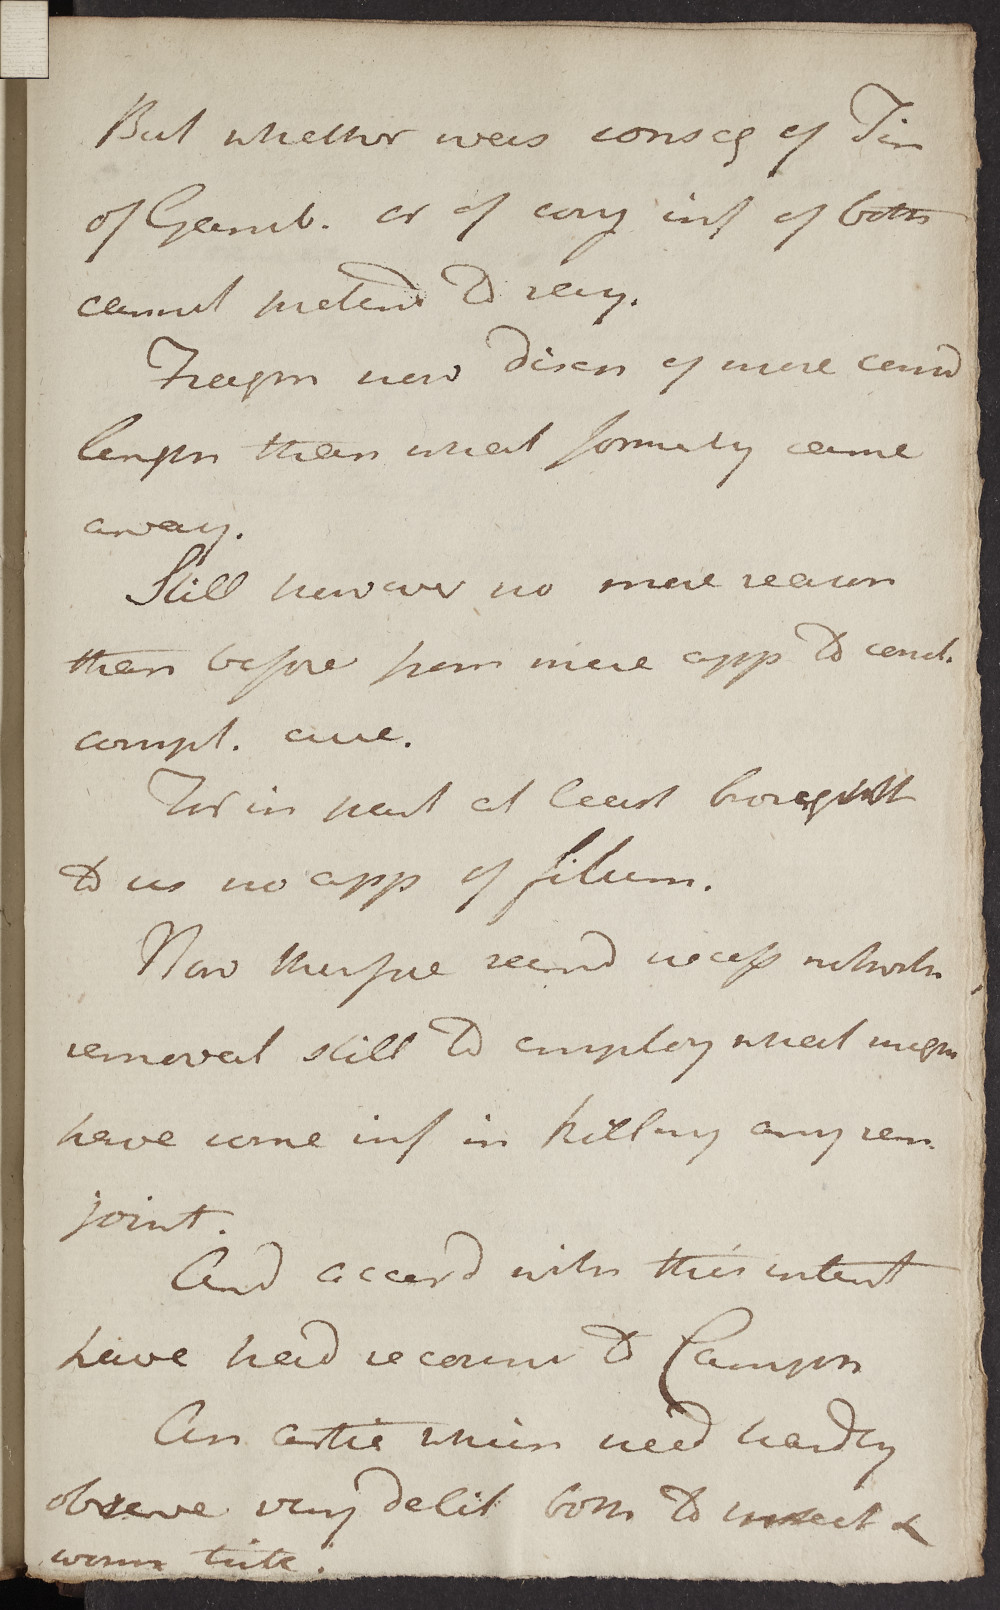 But whether was conseq of Tin
of Gamb. or of conj inf of both
cannot pretend to say.
Fragm now disch of more consid
length than what formerly came
away.
Still however no more reason
than before from mere app to concl.
compl. cure.
For in part at least brought
to us no app of filum.
Now therefore seemd necess notwith
removal still to employ what might
have some inf in killing any rem.
joint.
And accord with this intent
have had recourse to Camph
An artic which need hardly
observe very delet both to insect &
worm tribe.